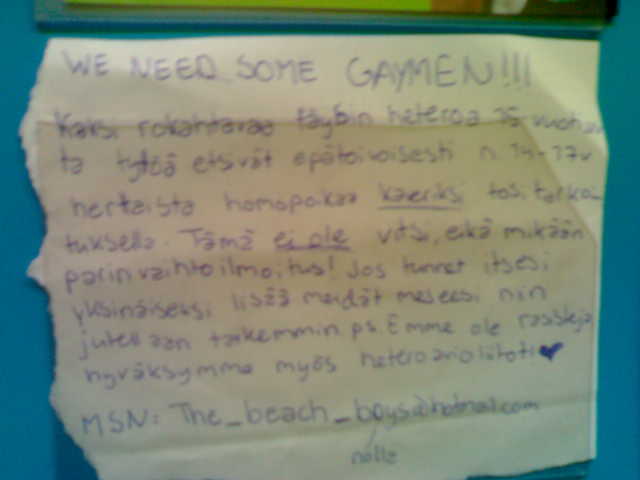 WE NEED SOME GAYMEN!!!
Kaksi rokahtavaa täysin heteroa 15-vuotias
ta tyttöä etsivät epätoivoisesti n. 14-17v
herttaista homopoikaa kaveriksi tositarkoi-
tuksella. Tämä ei ole vitsi, eikä mikään
parinvaihtoilmoitus! Jos tunnet itsesi
yksinäiseksi lisää meidät meseesi niin
jutellaan tarkemmin ps. Emme ole
hyväksymme myös
MSN: The_beach_b0ys@hotmail.com
nolla